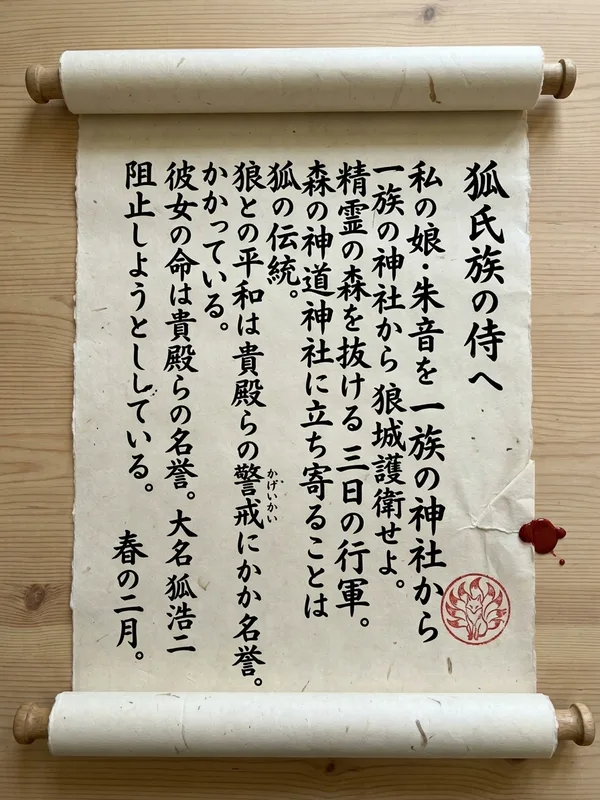 狐氏族の侍へ
私の娘・朱音を一族の神社から
一族の神社から 狼城護衛せよ。
精霊の森を抜ける 三日の行軍。
森の神道神社に立ち寄ることは
狐の伝統。
狼との平和は貴殿らの警戒にかか名誉。
かげいかい
かかっている。
彼女の命は貴殿らの名誉。大名狐浩二
阻止しようとししている。
春の二月。